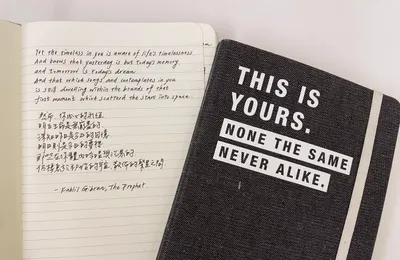 Yet the timeless in you is aware of life's timelessness
And knows that yesterday is but today's memory
and tomorrow is today's dream.
And that which sings and contemplates in you
is still dwelling within the bounds of that
first moment which scattered the stars into space.
然而 你內心的
明白生命是無窮盡的
知昨日是今日的回憶
明日則是今日的夢想
在你體內
- Kahlil Gibran, The Prophet
THIS IS
YOURS.
NONE THE SAME
NEVER ALIKE.